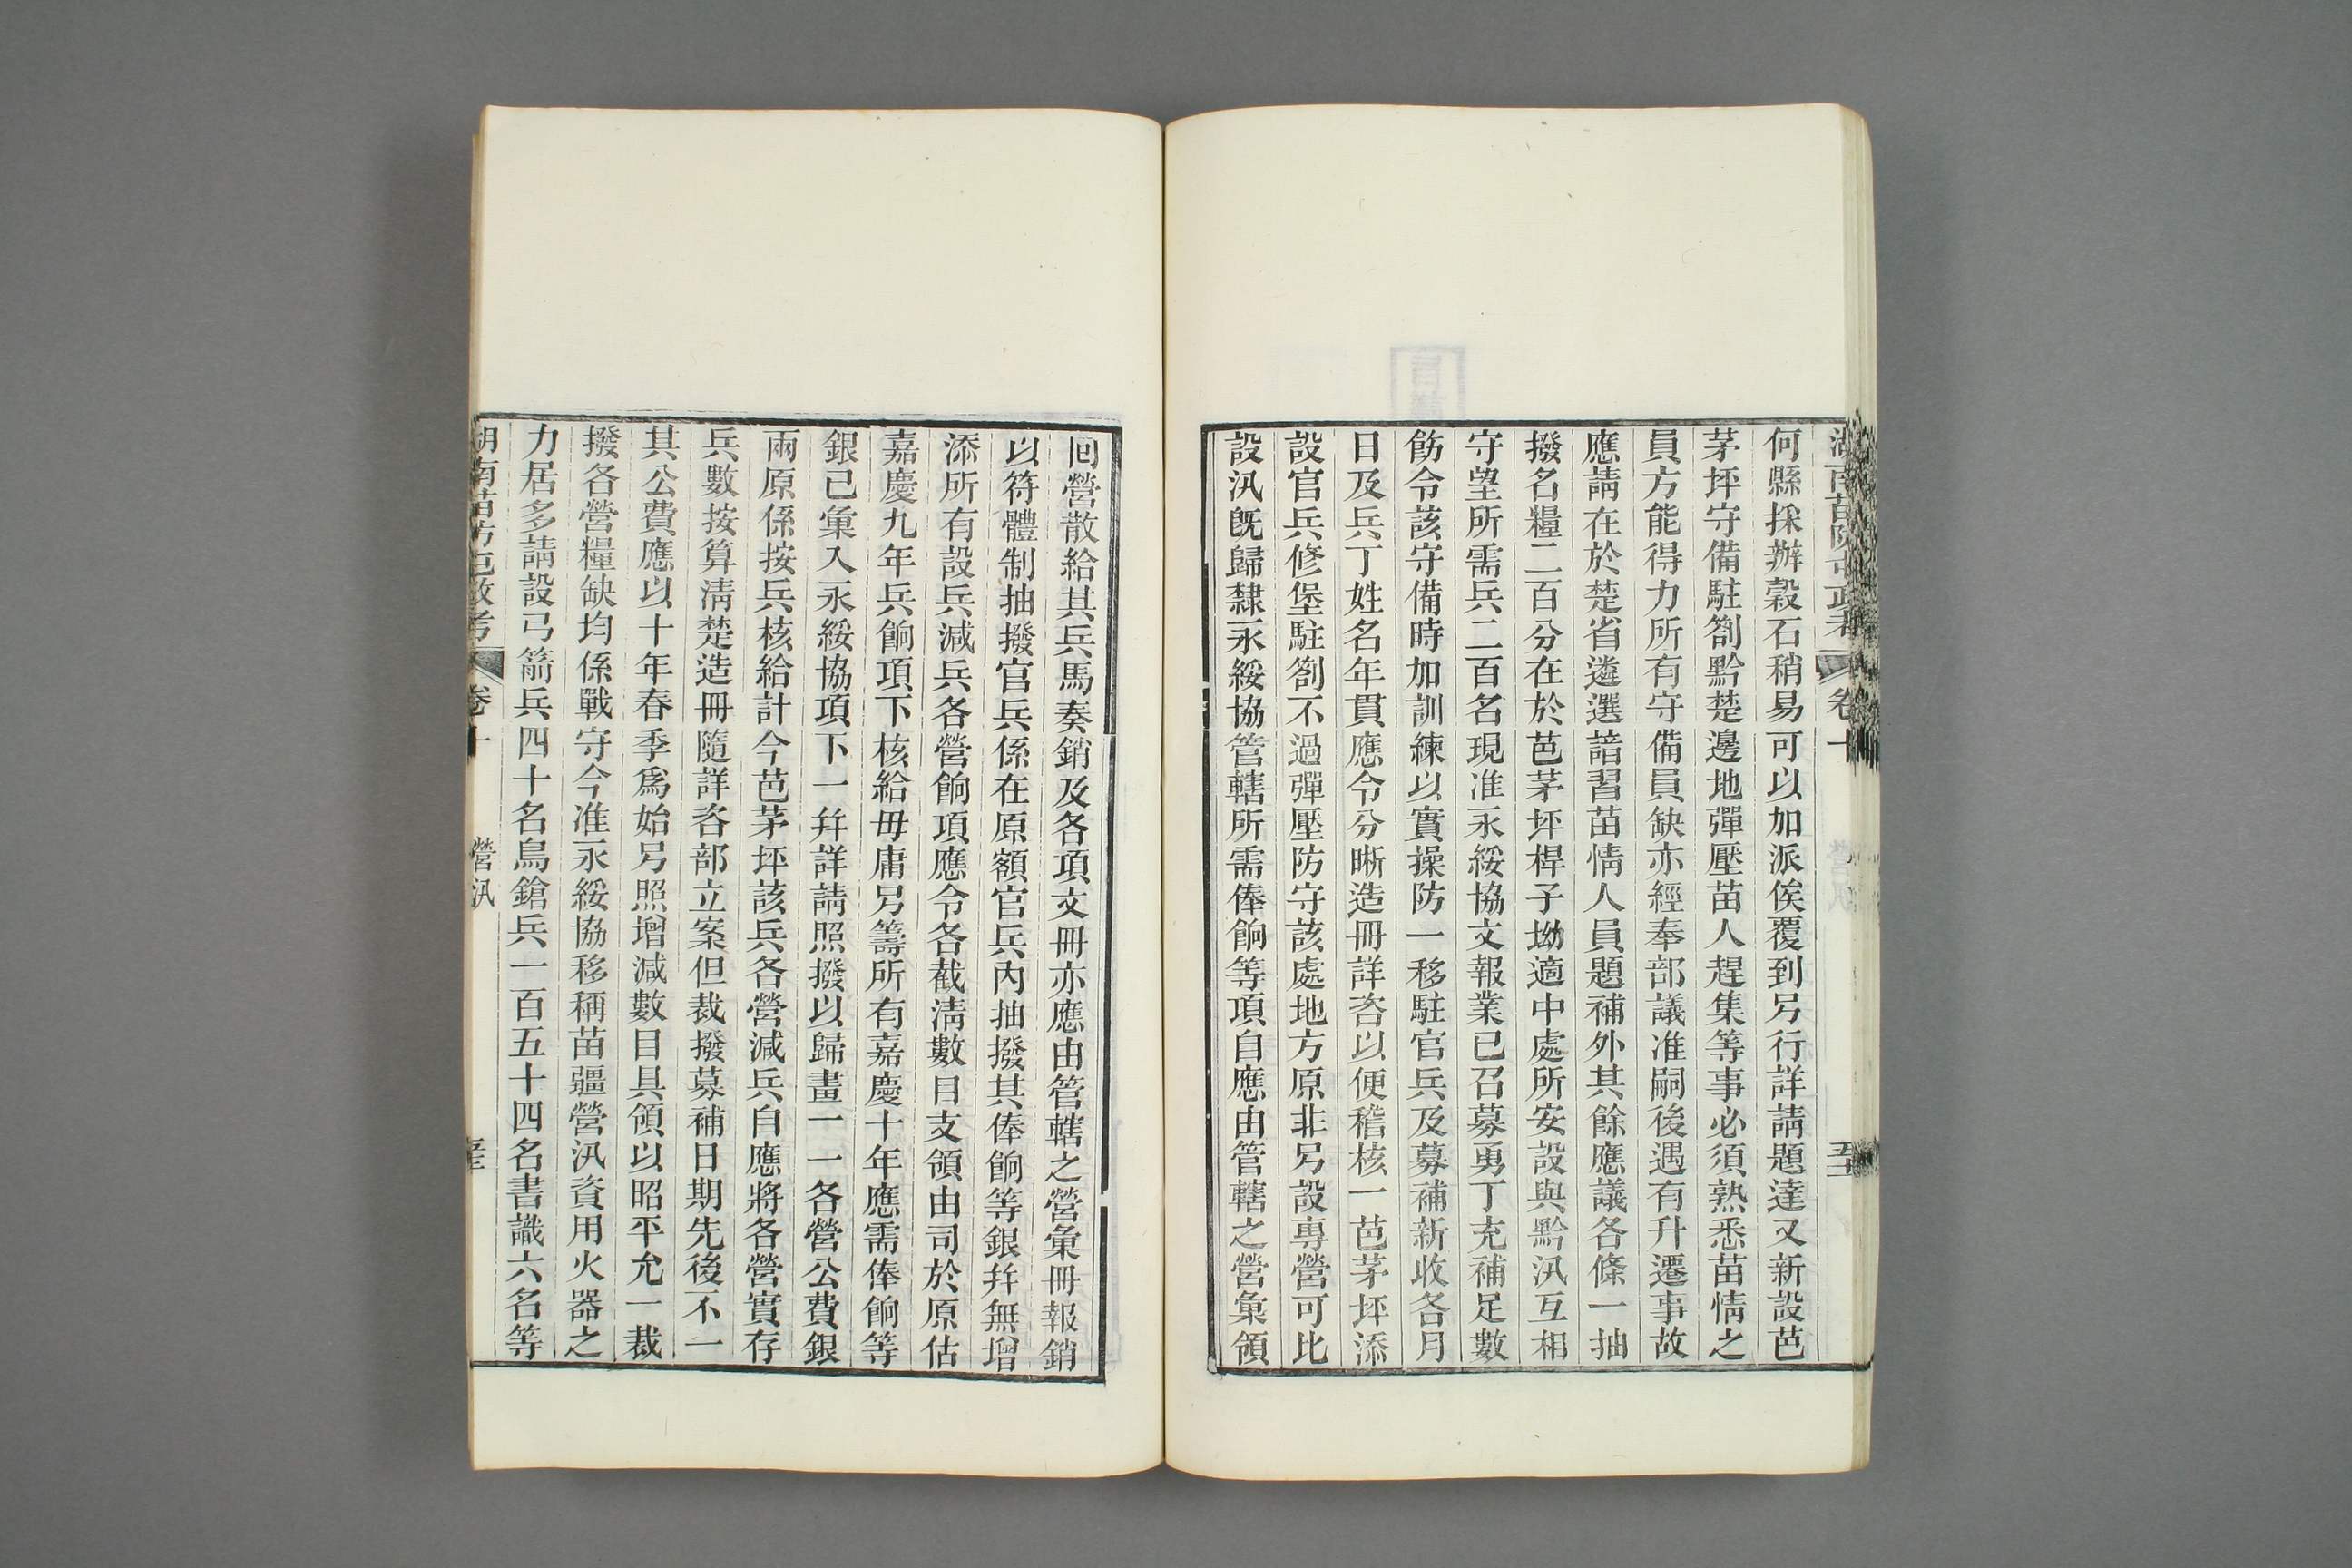 何縣採辦穀石稍易可以加派俟覆到另行詳請題達又新設芭
茅坪守備駐劄黔楚邊地彈壓苗人趕集等事必須熟悉苗情之
員方能得力所有守備員缺亦經奉部議准嗣後遇有升遷事故
應請在於楚省遴選諳習苗情人員題補外其餘應議各條一抽
撥名糧二百分在於芭茅坪桿子坳適中處所安設與黔汛互相
守望所需兵二百名現准永綏協文報業已召募勇丁充補足數
飭令該守備時加訓練以實操防一移駐官兵及募補新收各月
日及兵丁姓名年貫應令分晰造冊詳咨以便稽核一芭茅坪添
設官兵修堡駐劄不過彈壓防守該處地方原非另設專營可比
設汛既歸隸永綏協管轄所需俸餉等項自應由管轄之營彙領
回營散給其兵馬奏銷及各項文冊亦應由管轄之營彙冊報銷
以符體制抽撥官兵係在原額官兵內抽撥其俸餉等銀幷無增
添所有設兵減兵各營餉項應令各截清數目支領由司於原估
嘉慶九年兵餉項下核給毋庸另籌所有嘉慶十年應需俸餉等
銀已彙入永綏協項下一幷詳請照撥以歸畫一一各營公費銀
兩原係按兵核給計今芭茅坪該兵各營減兵自應將各營實存
兵數按算清楚造冊隨詳咨部立案但裁撥募補日期先後不一
其公費應以十年春季爲始另照增減數目具領以昭平允一裁
撥各營糧缺均係戰守今准永綏協移稱苗疆營汛資用火器之
力居多請設弓箭兵四十名鳥鎗兵一百五十四名書識六名等
湖南苗防屯政考 卷十 營汛